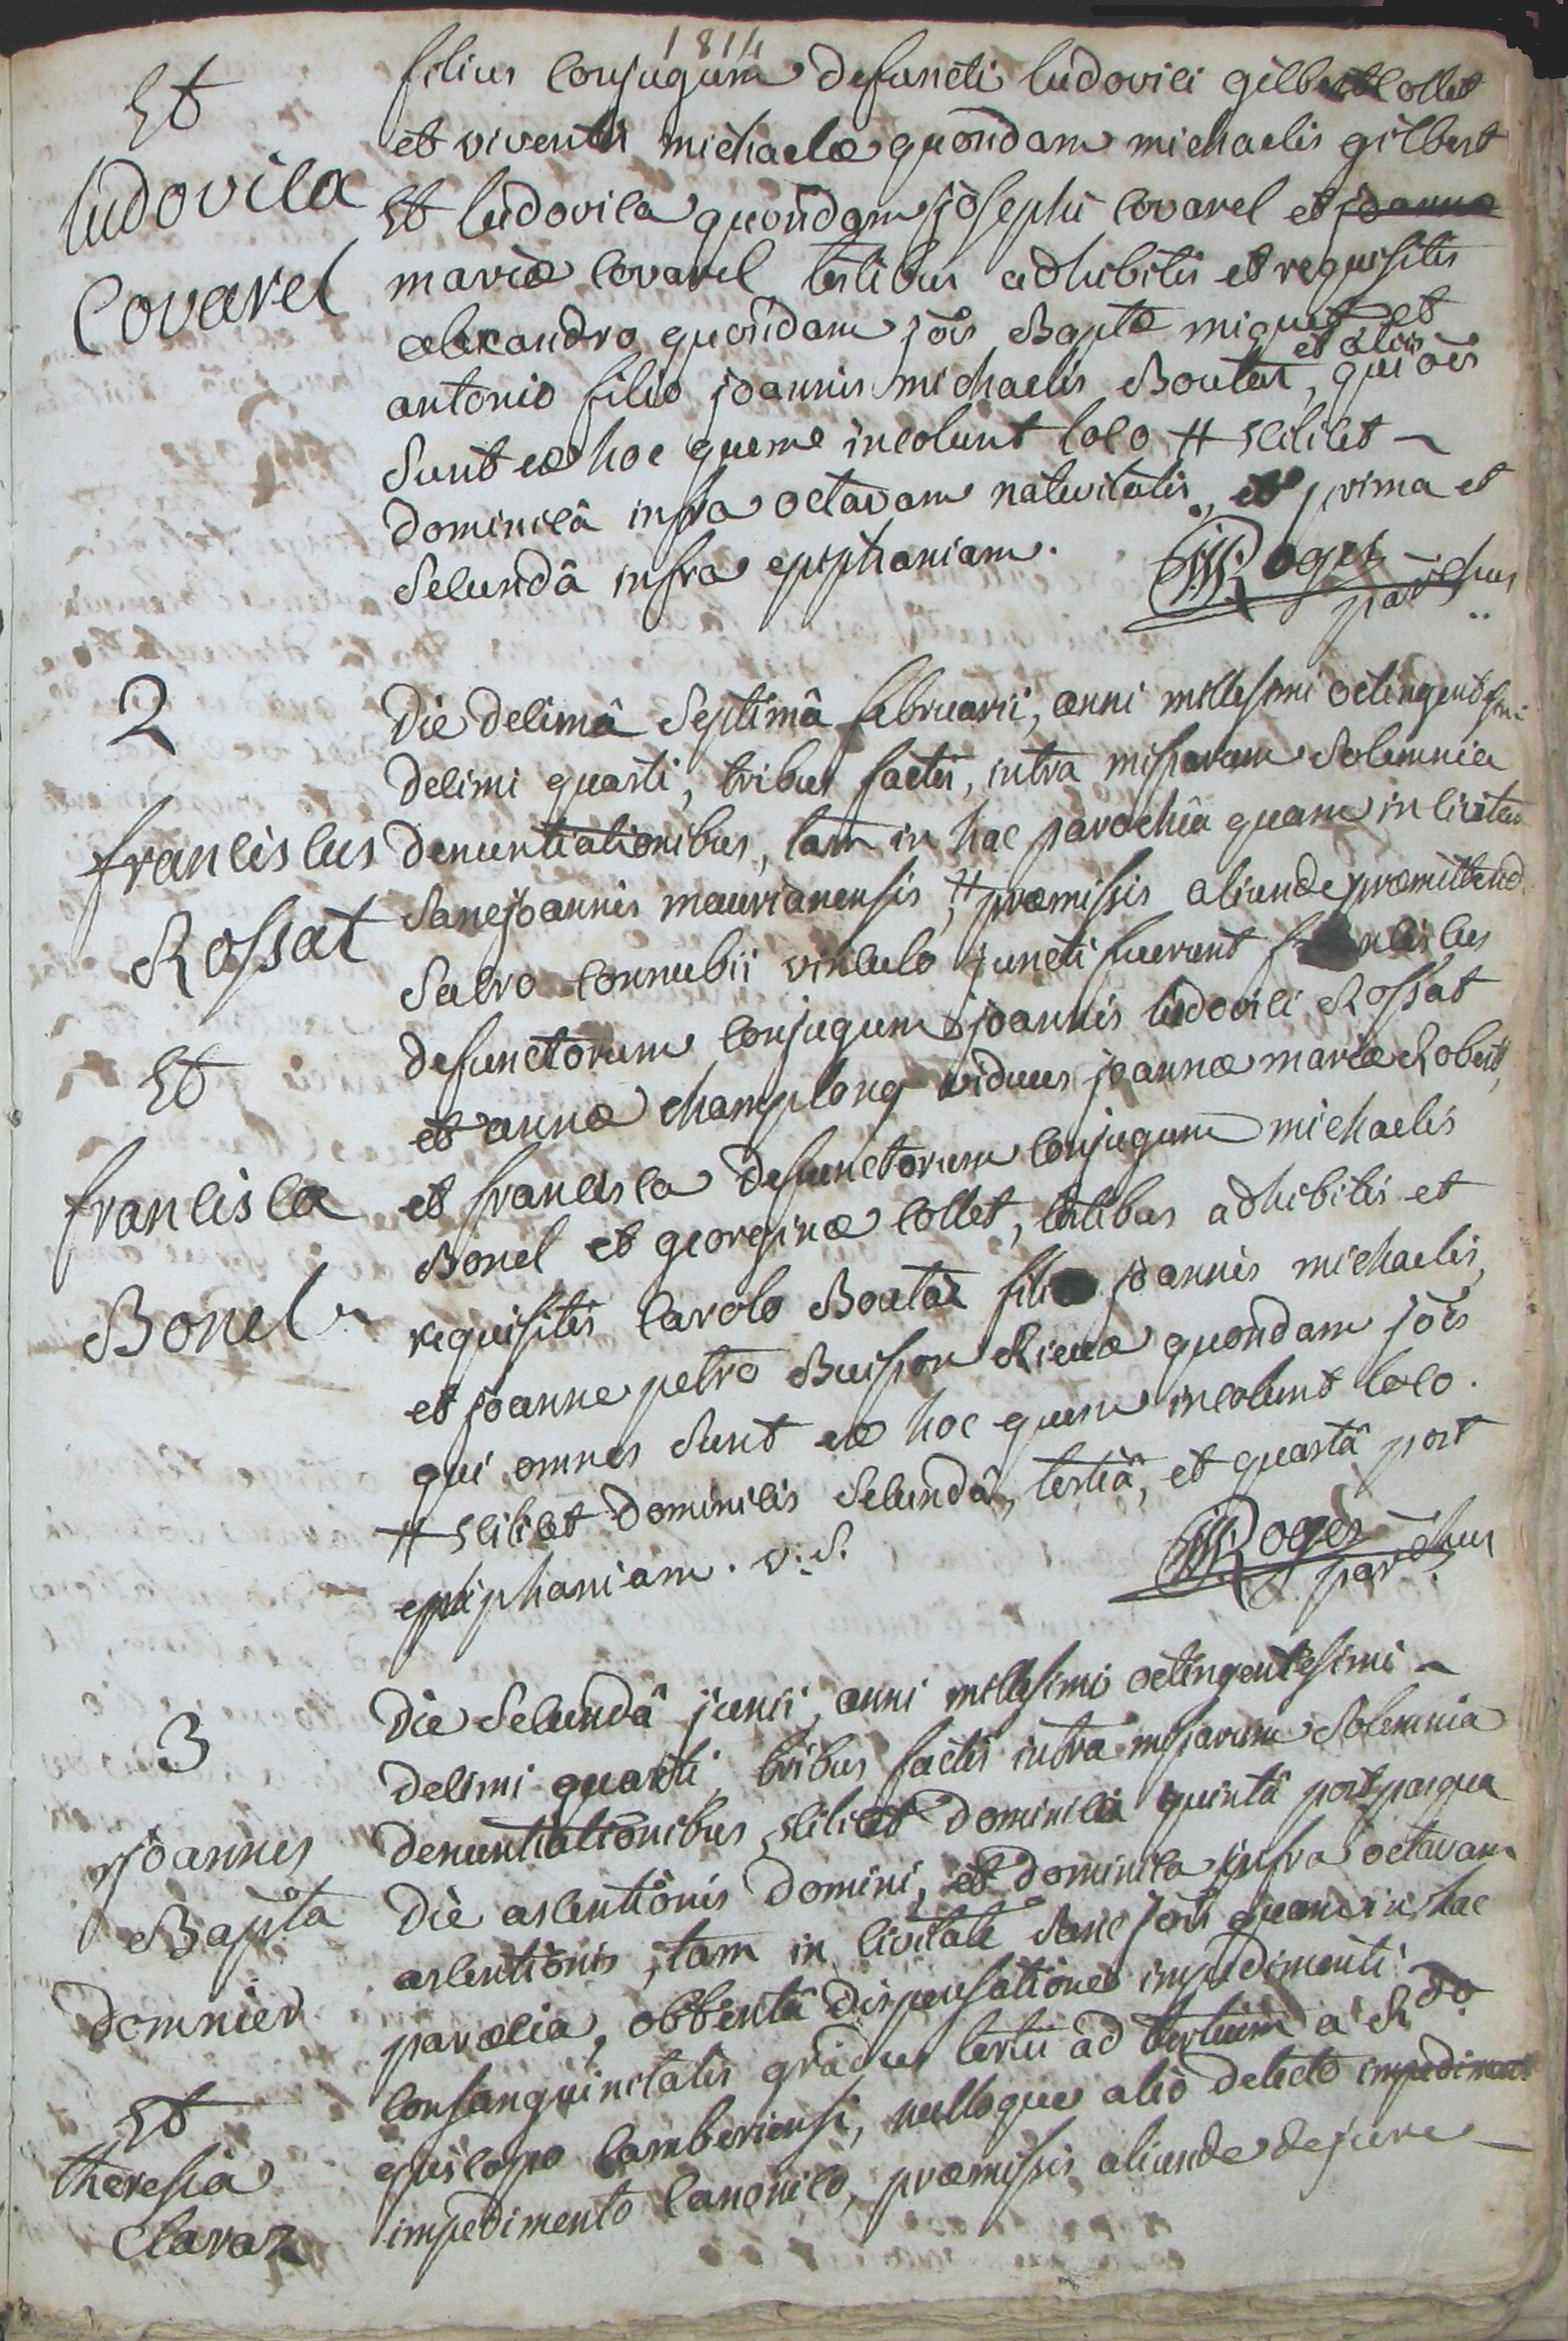 1814
Et
ludovica
Covarel
filius conjugum defuncti ludovici gilbert collet
et viventis michaelæ quondam michaelis gilbert
Et ludovica quondam josephi covarel et joanna
mariæ covarel testibus adhibitis et requisitis
alexandro quondam jois Baptæ miquet et
et aliis
antonio filio joannis michaelis Boutaz, qui oes
sunt ex hoc quem incolunt loco # scilicet
dominicâ infra octavam nativitatis, et prima et
secundâ infra epiphaniam.
Roger
parochus
2
franciscus
Rossat
Et
francisca
Bonel
Die decimâ septimâ februarii, anni millesimi octingentesimi
decimi quarti, tribus factis, intra missarum solemnia
denuntiationibus, tam in hac parochiâ quam in civitate
sancjoannis maurianensis, # præmissis aliunde præmittend.
sacro connubii vinculo juncti fuerunt franciscus
defunctorum conjugum joannis ludovici Rossat
et annæ champlong viduus joannæ mariæ Robert,
et francisca defunctorum conjugum michaelis
Bonel et georginæ collet, testibus adhibitis et
requisitis carolo Boutaz filio joannis michaelis,
et joanne petro Buisson Rieux quondam jois
qui omnes sunt ex hoc quem incolunt loco.
# scilicet dominicis secundâ, tertiâ, et quartâ post
epiphaniam. v. s.
Roger
parochus
3
joannes
Bapta
domnier
Et
theresia
Claraz
Die secundâ junii, anni millesimi octingentesimi
decimi quarti, tribus factis intra missarum solemnia
denuntiationibus, scilicet dominicâ quintâ post pasqua
Die ascentionis domini, et dominica infra octavam
ascentionis, tam in civitate sanc jois quam in hac
parœcia, obtentâ dispensatione impedimenti
consanguinitatis gradus tertii ad tertium a Rdo
episcopo camberiensi, nulloque alio detecto impediment
impedimento canonico, præmissis aliunde de jure